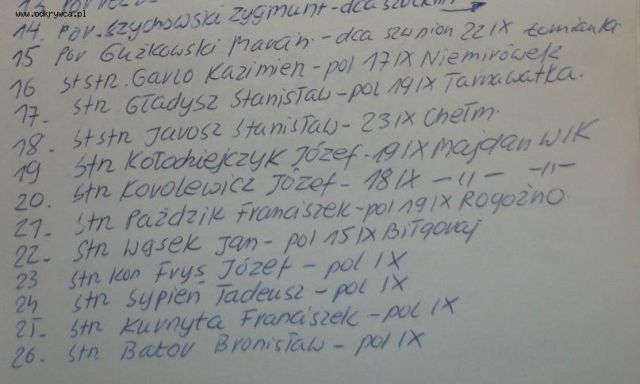 www.odkrywca.pl
14. por. Szychowski Zygmunt - dca
15 por Guzkowski Marian - dca szwnion 22 IX Łomianki
16 st str. Gavlo Kazimier - pol 17 IX Niemirówek
17. str Gładysz Stanisław - pol 19 IX Tarnawatka.
18. st str Jarosz Stanisław - 23 IX Chełm.
19 str Kołodziejczyk Józef - 19 IX Majdan Wlk
20. str Korolewicz Józef - 18 IX — „ — — „ —
21. str Paździk Franciszek - pol 19 IX Rogoźno
22. str Wąsek Jan - pol 15 IX Biłgoraj
23 str kon Fryś Józef - pol IX
24 str Sypień Tadeusz - pol IX
25. str Kurnyta Franciszek - pol IX
26. str Bator Bronisław - pol IX